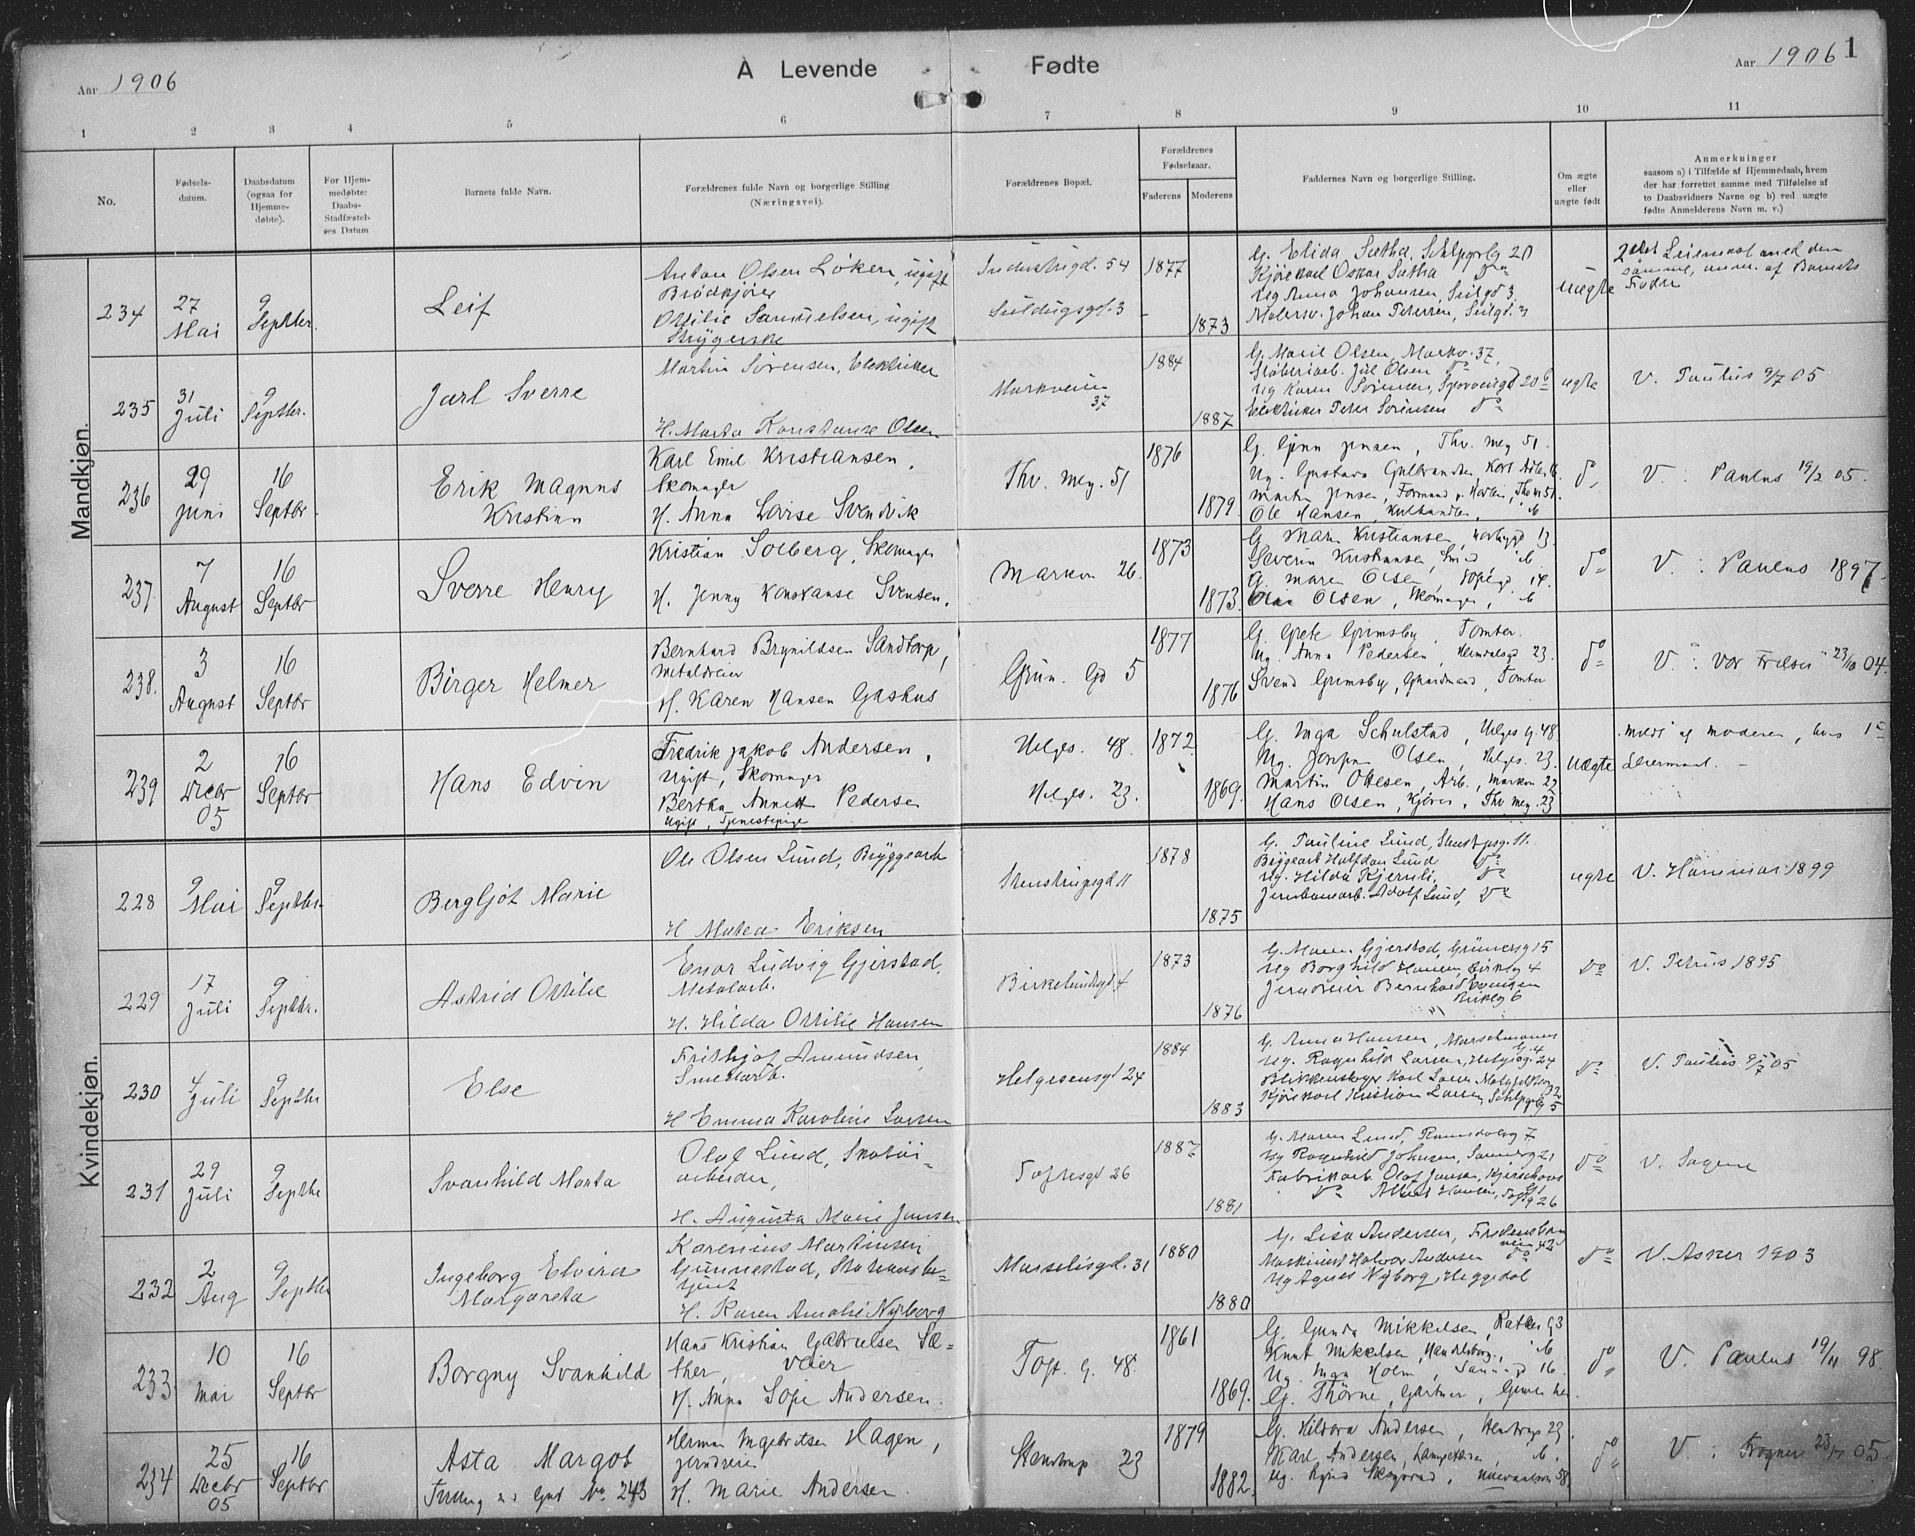 Aar 1906
A Levende Fødte
Aar 1906
1
1 2 3 4 5 6 7 8 9 10 11
No.
Fødsels-
datum.
Daabsdatum
(ogsaa for
Hjemme-
døbte).
For Hjem-
medøbte:
Daabs-
Stadfæstel-
ses Datum
Barnets fulde Navn.
Forældrenes fulde Navn og borgerlige Stilling
(Næringsvei).
Forældrenes Bopæl.
Forældrenes
Fødselsaar.
Faderens
Moderens
Faddernes Navn og borgerlige Stilling.
Om ægte
eller
uægte født
Anmerkninger
saasom a) i Tilfælde af Hjemmedaab, hvem
der har forrettet samme med Tilføielse af
to Daabsvidners Navne og b) ved uægte
fødte Anmelderens Navn m. v.)
Mandkjøn.
234
27
Mai
9
Septbr.
Leif
Anton Olsen Løken, ugift
Brødkjører
Ottilie Samuelsen, ugift
Strygerske
Industrigd. 54
1877
1873
G. Elida Sætha, Schlpgrlg 20
Kjørekarl Oskar Sætha do
Ug Anna Johansen, Seilgd 3
Malersv. Johan Petersen, Seilgd. 3
Uægte
2det Leiermaal med den
samme, anm. af Barnets
Fader
235
31
Juli
9
Septbr.
Jarl Sverre
Martin Sørensen, Elektriker
H. Marta Konstanse Olsen
Markveien
37
1884
1887
G. Marie Olsen, Markv. 37
Støberiarb. Jul Olsen do
Ug Karen Sørensen,
Elektriker Peter Sørensen do
ægte
V. Paulus 9/7 05
236
29
Juni
16
Septbr
Erik Magnus
Kristian
Karl Emil Kristiansen,
Skomager
H. Anna Lovise Svendvik
Thv. Mey. 51
1876
1879
Jensen, Thv. Mey 51.
Ug. Gustava Gulbrandsen
Martin Jensen, Formand
Ole Hansen, Kulhandler, ib
do
V. Paulus 19/2 05.
237
7
August
16
Septbr
Sverre Henry
Kristian Solberg, Skomager
H. Jenny Konstanse Svensen.
Markv 26.
1873
1873.
G. Maren Kristiansen, 13.
Severin Kristiansen, Smed ib
G. Maren Olsen,
Olsen, Skomager, ib
do
V. : Paulus 1897.
238.
3
August
16
Septbr
Birger Helmer
Bernhard Brynildsen Sandtorp,
Metaldreier
H. Karen Hansen Gashus
Grün. Gd 5
1877
1876
G. Grete Grimsby, Tomter.
Ug. Anna Pedersen, Heimdalsgd 23.
Svend Grimsby, Gaardmand, Tomter
do
V. : Vor Frelser 23/10 04.
239
2
Decbr
05
16
Septbr
Hans Edvin
Fredrik Jakob Andersen,
Ugift, Skomager
Bertha Annette Pedersen
Ugift, Tjenestepige
Helges. 48.
Helges. 23.
1872
1869.
G. Inga Schulstad, Helges g. 48
Ug. Josefa Olsen, Helges. 23.
Martin Olsen, Arb., Markv 22
Hans Olsen, Kjører, Thv Mey. 23
Uægte
meldt af moderen, hns 1ste
Leiermaal. –
Kvindekjøn.
228
9
Mai
9
Septbr.
Bergljot Marie
Ole Olsen Lund, Bryggearb
H Matea Eriksen
Stenstrupsgd 11
1878
1875
G. Pauline Lund, Stenstrpsg. 11.
Bryggearb Halfdan Lund do
Ug. Hilda Kjernli, do
Jernbanearb. Adolf Lund, do
ægte
V. Hammar 1899
229
17
Juli
9
Septbr.
Astrid Ottilie
Enar Ludvig Gjerstad,
Metalarb.
H. Hilda Ottilie Hansen
Birkelundsgd 4
1873
1876
G. Maren Gjerstad, Grünersg 15
Ug Borghild Hansen, Birklg 4
Jerndreier Bernhard
Birklg 6
do
V. Petrus 1895
230
7
Juli
9
Septbr
Else
Frithjof Amundsen,
Smedarb.
H Emma Karoline Larsen
Helgesensgd 24
1884
1883
G. Anna Hansen, Marselinnes
G. 4
Ug. Ragnhild Larsen, Helgsg. 24
Blikkenslager Karl Larsen
Kjørekarl Kristian Larsen, Schlpgrlg 5
do
V. Paulus 9/7 05
231
29
Juli
9
Septbr
Svanhild Marta
Olaf Lund, Skotøi-
arbeider,
H. Augusta Marie Jansen
Toftesgd 26
1887
1881
G. Maren Lund, 7
Ug Ragnhild Johnsen, Sannerg 21
Fabrikarb. Olaf Jansen,
do Albert Hansen, Toftsg 26
do
V. Sagene
232
2
Aug
9
Septbr
Ingeborg Elvira
Margareta
Karenius Martinsen
Gunnestad, Stationsbe-
tjent
H. Karen Amalie Nyborg
Marselisgd. 31
1880
1880
G. Lisa Andersen, Fredensborg
vein 42
Maskinist Halvor Andersen do
Ug Agnes Nyborg, Heggedal
do
V. Asker 1903
233
10
Mai
16
Septbr
Borgny Svanhild
Hans Kristian Gabrielsen Sæ-
ther, Veier
H. Anna Sofie Andersen.
Toft. G. 48.
1861
1869.
G. Gunda Mikkelsen, 63
Knut Mikkelsen, Handelsborg., ib
Ug. Inga Holm, 16.
G. Thorne, Gartner,
do
V. Paulus 19/11 98.
234
25
Decbr
05
16
Septbr
Asta Margot
Tvilling Gut No 243
Herman Ingebretsen Hagen,
Jerndreier
H. Marie Andersen.
Stenstrup 23
1879
1882.
G. Andersen, Stenstrup 23.
Karl Andersen, ib.
Ug.
do
V. : Frogner 23/ 05.